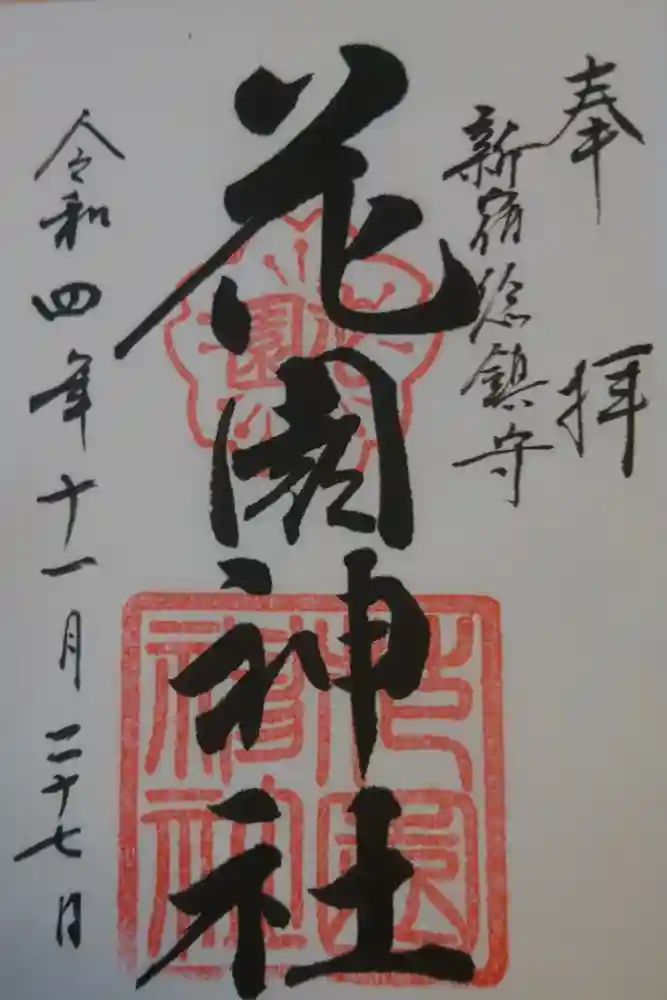 奉拝
新宿総鎮守
花園神社
令和四年十一月二十七日
花園
花園神社